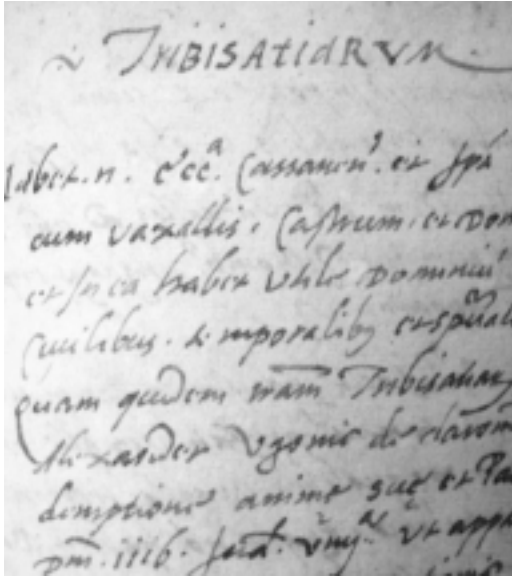 TRIBISATIARUM
habet. n. ecc.a Cassanen. et
cum vaxallis. Castrum. et Dom
et in ea habet utile Dominiu
Civilibus. temporalib et spual
Quam quidem tram Tribisatiar
Alexander Ugonis de claromo
demptione anime sue et Pa
ut app